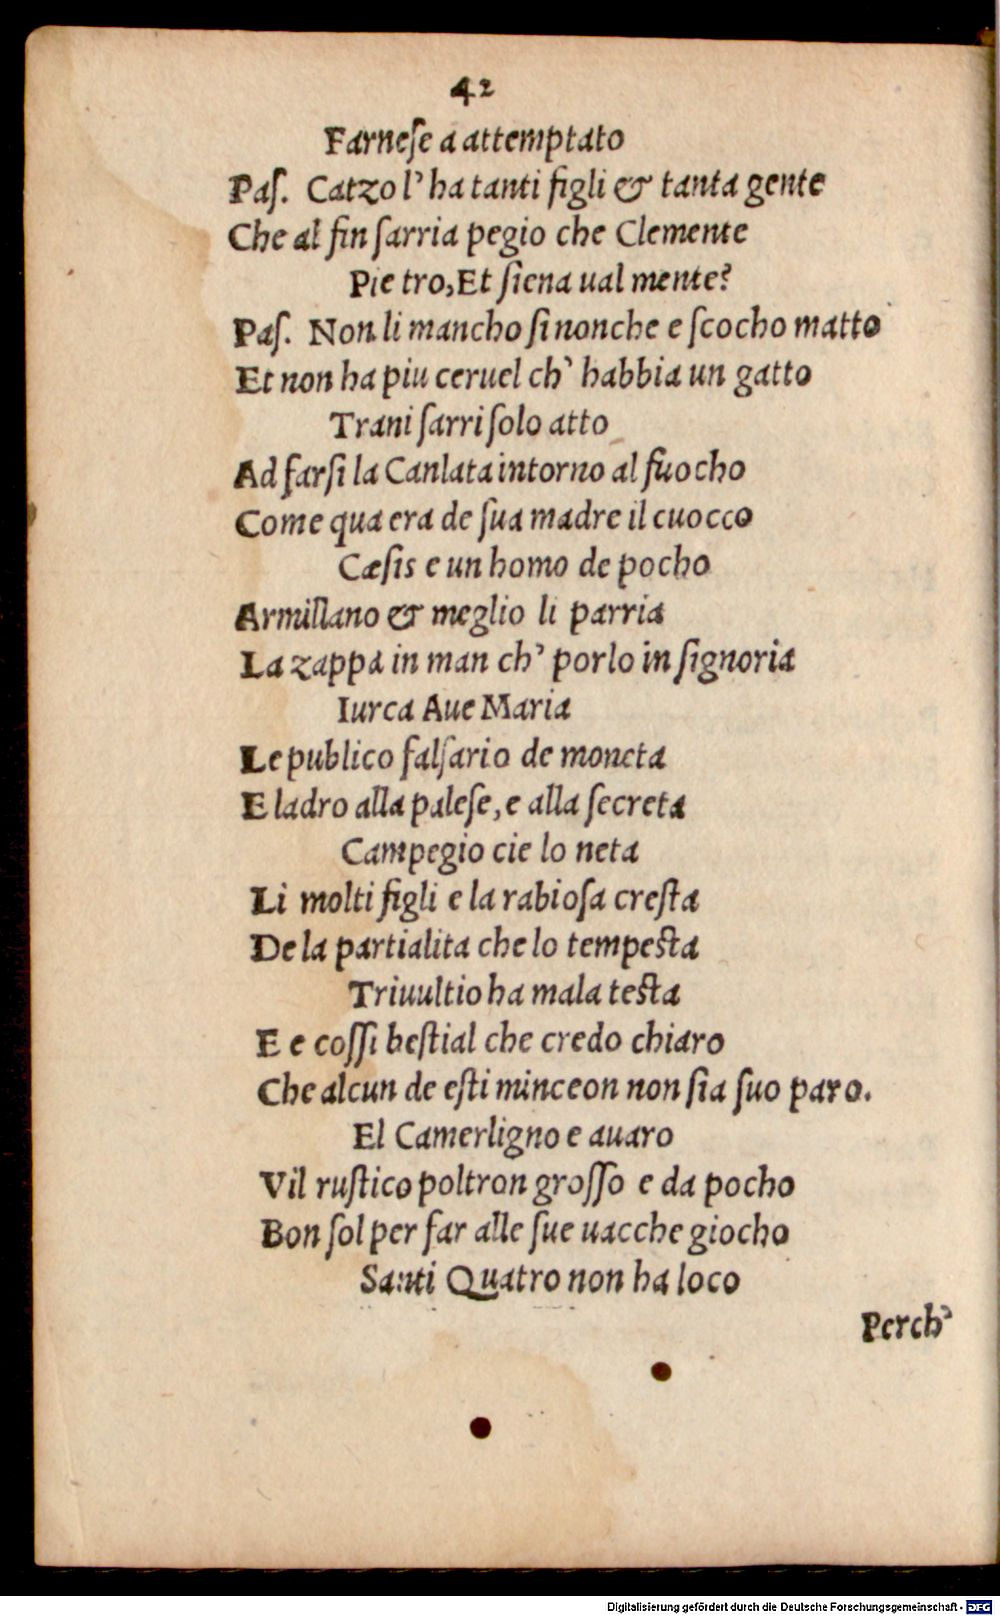 42
Farneſe a attemptato
Paſ. Catzo l' ha tanti figli & tanta gente
Che al fin ſarria pegio che Clemente
Pie tro, Et ſiena ual mente?
Paſ. Non li mancho ſi nonche e ſcocho matto
Et non ha piu ceruel ch' habbia un gatto
Trani ſarri ſolo atto
Ad farſi la Canlata intorno al fuocho
Come qua era de ſua madre il cuocco
Cæſis e un homo de pocho
Armillano & meglio li parria
La zappa in man ch' porlo in ſignoria
Iurca Aue Maria
Le publico falſario de moneta
E ladro alla paleſe, e alla ſecreta
Campegio cie lo neta
Li molti figli e la rabioſa creſta
De la partialita che lo tempeſta
Triuultio ha mala teſta
E e coſſi beſtial che credo chiaro
Che alcun de eſti minceon non ſia ſuo paro.
El Camerligno e auaro
Vil ruſtico poltron groſſo e da pocho
Bon ſol per far alle ſue uacche giocho
Santi Quatro non ha loco
Perch'
Digitalisierung gefördert durch die Deutsche Forschungsgemeinschaft - DFG